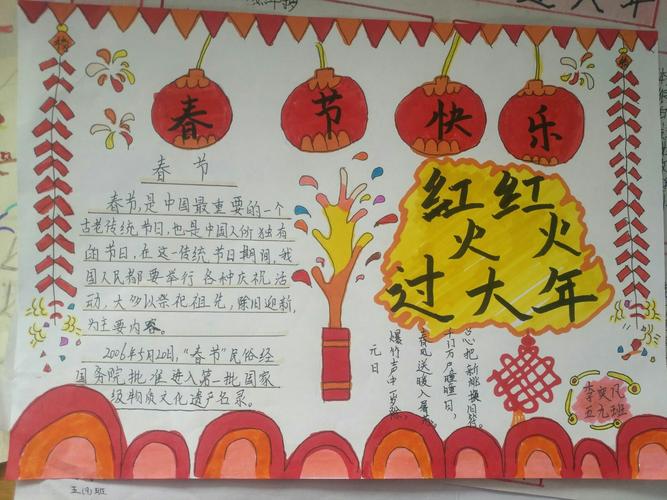 春节快乐
春节
春节,是中国最重要的一个
古老传统节日,也是中国人们独有
的节日,在这一传统节日期间,我
国人民都要举行各种庆祝活
动,大多以祭祀祖先,除旧迎新,
为主要内容。
2006年5月20日,“春节”民俗经
国务院批准进入第一批国家
级物质文化遗产名录。
红红
火火
过大年
元日
爆竹声中一岁除,
春风送暖入屠苏。
千门万户曈曈日,
总把新桃换旧符。
李奕凡
五九班
五(9)班